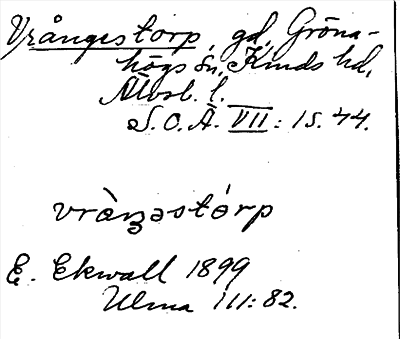 Vrångestorp, gd, Gröna-
högs sn, Kinds hd,
Älvsb. l.
S.O.Ä. VII: 1 s. 44.
vràŋəstórp
E. Ekwall 1899
Ulma III: 82.